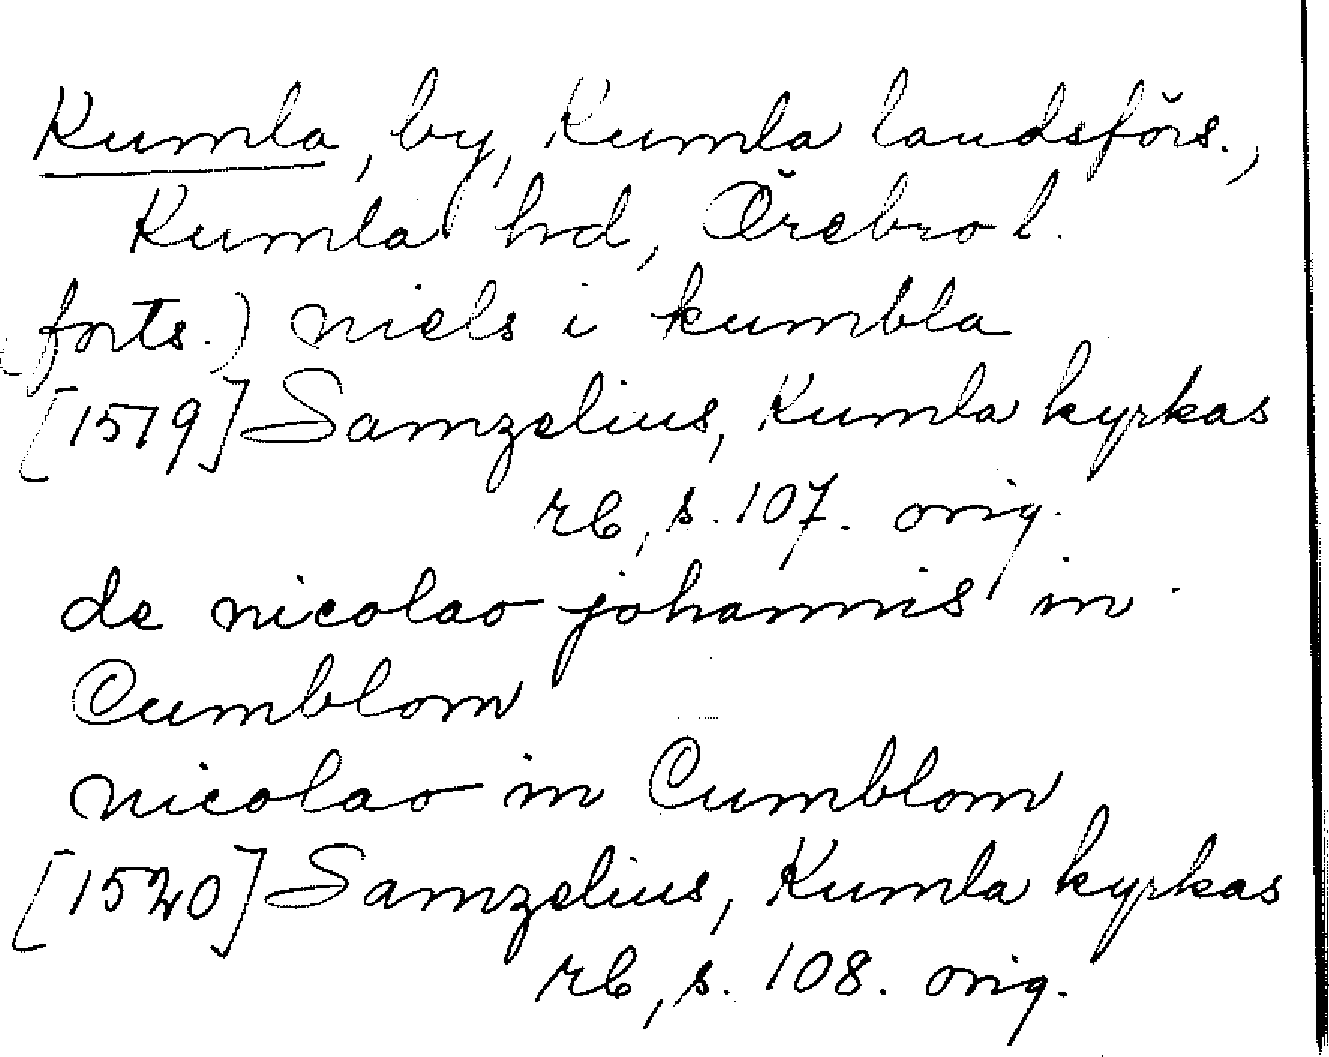 Kumla, by, Kumla landsförs.,
Kumla hd, Örebro l.
(forts.) niels i kumbla
[1519] Samzelius, Kumla kyrkas
rb, s. 107. orig.
de nicolao johannis in
Cumblom
nicolao in Cumblom
[1520] Samzelius, Kumla kyrkas
rb, s. 108. orig.